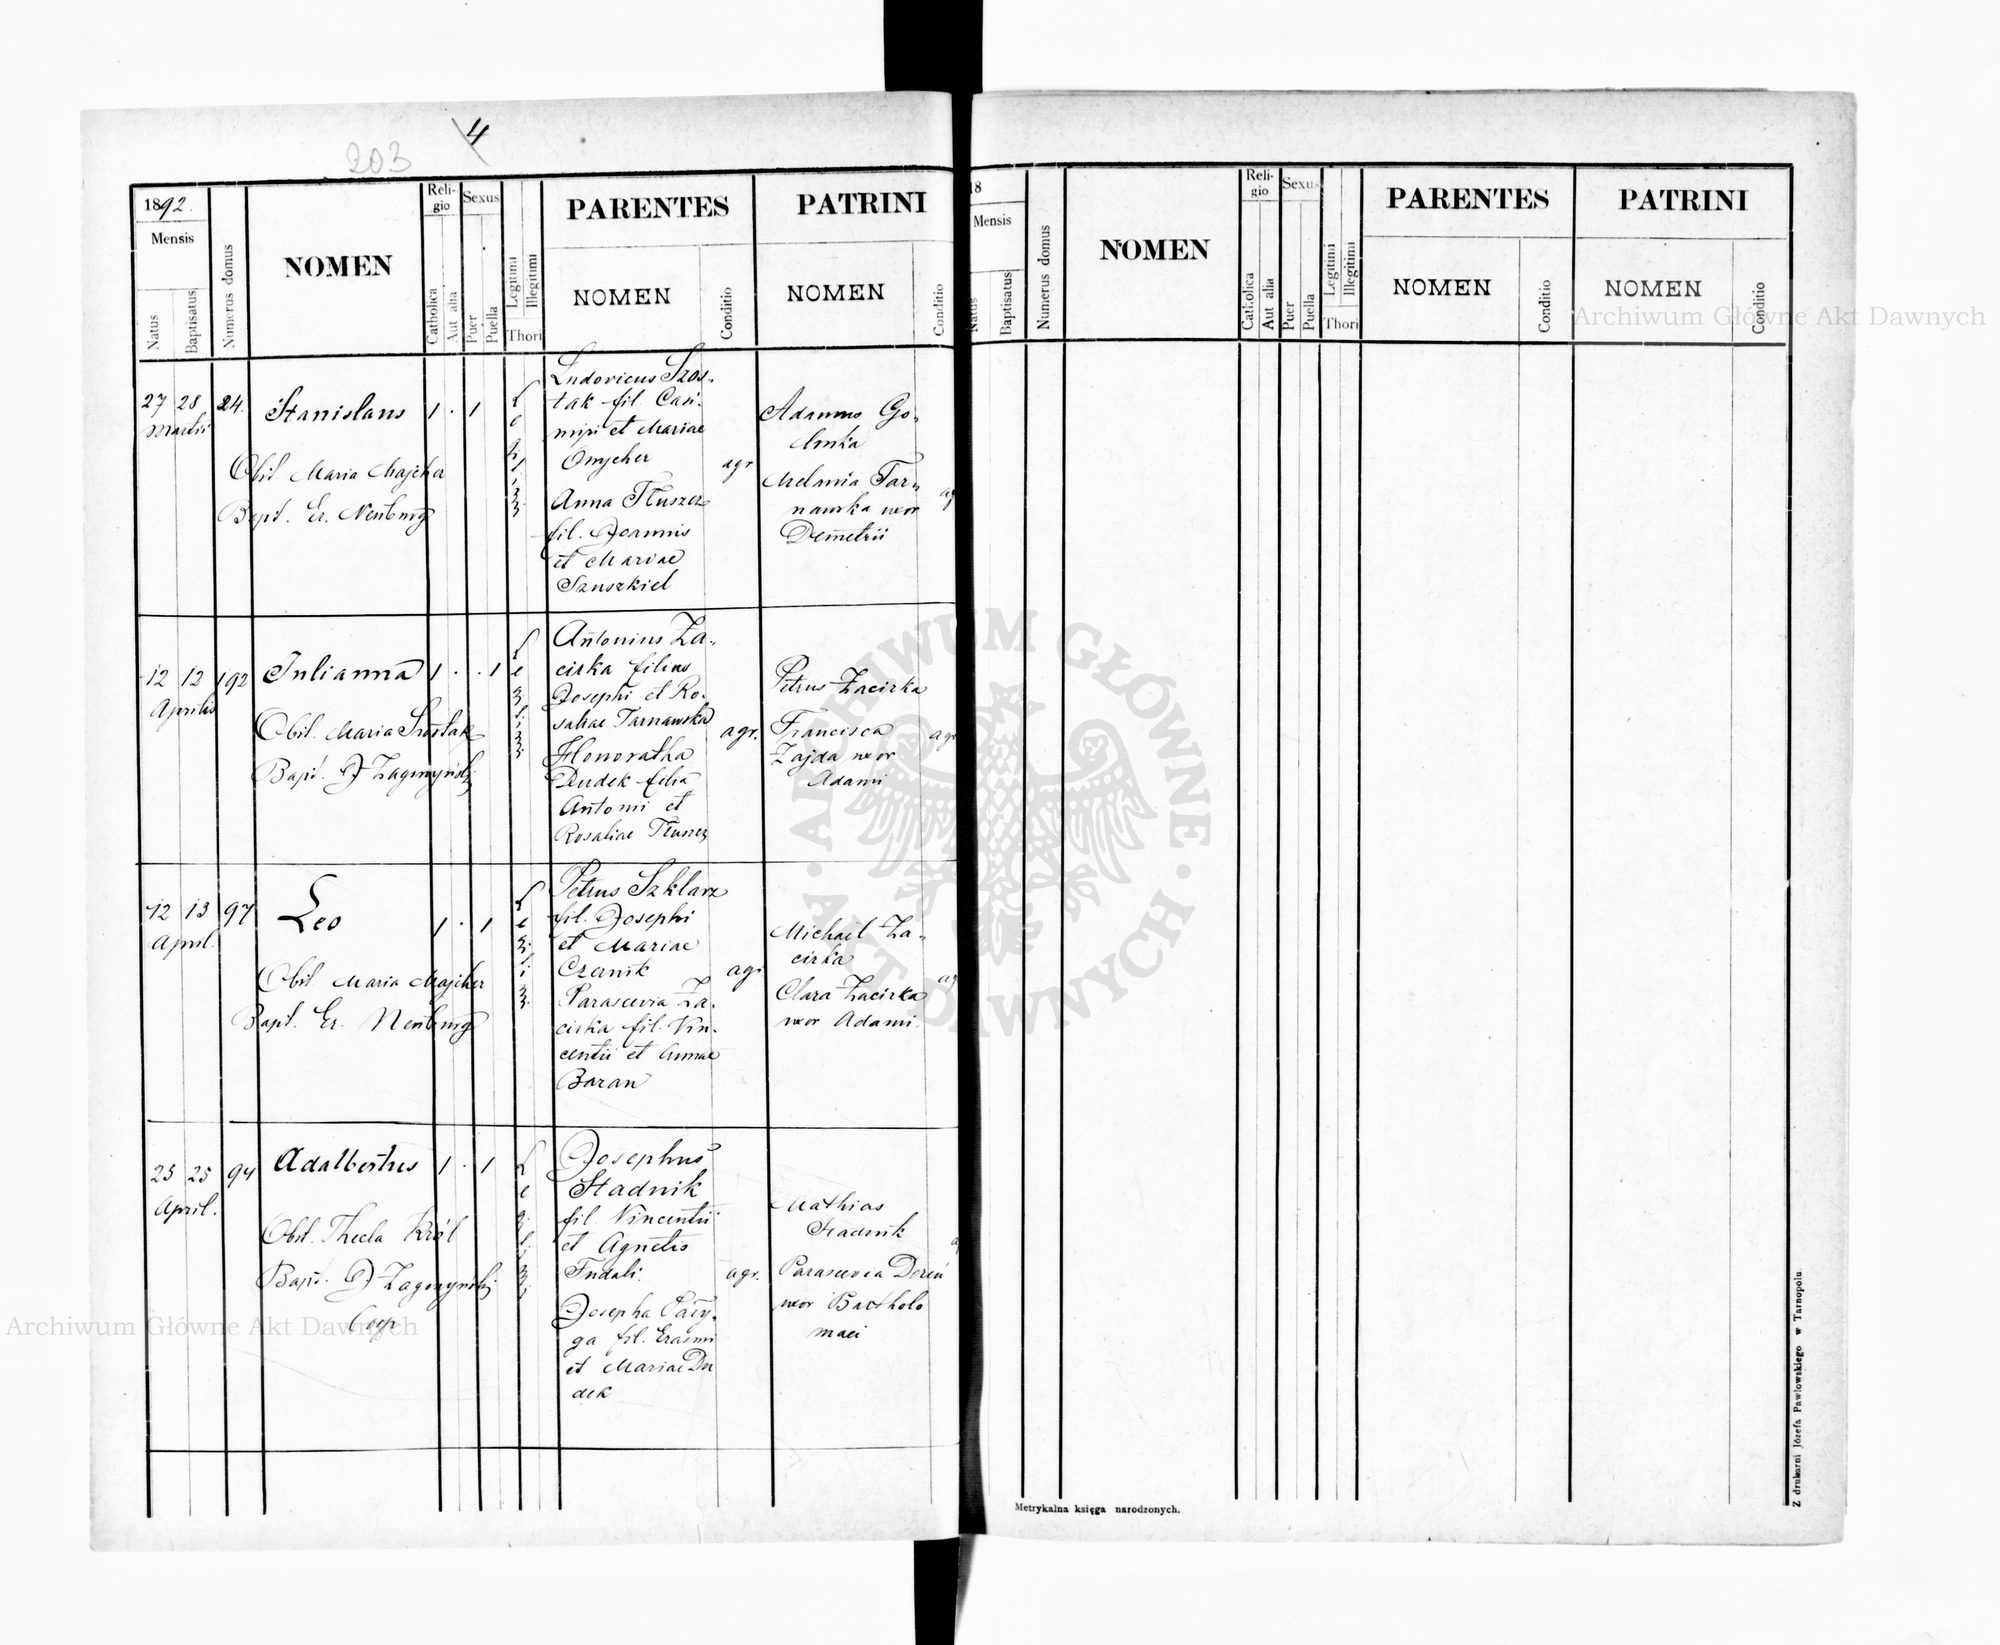 203
4
1892.
Mensis
Natus
Baptisatus
Numerus domus
NOMEN
Reli-
gio
Catholica
Aut alia
Sexus
Puer
Puella
Legitimi
Illegitimi
Thori
PARENTES
NOMEN
Conditio
PATRINI
NOMEN
Conditio
27 28 24. Stanislaus 1 . 1
Martii
Obst. Maria Majcher
Bapt. Er. Neuburg
Ludovicus Szos-
tak fil Casi-
miri et Mariae
agr
Anna Tłuszcz
fil. Joannis
et Mariae
Szuszkiel
Adamus Go-
linka
Melania Tar-
nawska uxor
Demetrii
12 12 192 Julianna 1 . . 1
Aprilis
Obst. Maria Szostak
Bapt. J Zagorzyński
Antonius Za-
cirka filius
Josephi et Ro-
saliae Tarnawska
agr.
Honoratha
Dudek filia
Antonii et
Rosaliae Tłuszcz
Petrus Zacirka
Francisca
Zajda uxor
Adami
agr
12 13 97 Leo 1 . 1
April.
Obst Maria Majcher
Bapt. Er. Neuburg
Petrus Szklarz
fil. Josephi
et Mariae
Czernik
agr
Parascevia Za-
cirka fil. Vin-
centii et Annae
Baran
Michail Za-
cirka
Clara Zacirka
uxor Adami.
25 25 94 Adalbertus 1 . 1
April.
Obst. Thecla Król
Bapt. J Zagorzyński
Coop
Josephus
Stadnik
fil. Vincentii
et Agnetis
Fudali.
agr.
Josepha Pary-
ga fil. Erasmi
et Mariae Du
dek
Mathias
Stadnik
Parascevia Doreń
uxor Bartholo
maei
18
Mensis
Natus
Baptisatus
Numerus domus
NOMEN
Reli-
gio
Catholica
Aut alia
Sexus
Puer
Puella
Legitimi
Illegitimi
Thori
PARENTES
NOMEN
Conditio
PATRINI
NOMEN
Conditio
Metrykalna księga narodzonych.
Z drukarni Józefa Pawłowskiego w Tarnopolu
Archiwum Główne Akt Dawnych
Archiwum Główne Akt Dawnych
ARCHIWUM GŁÓWNE AKT DAWNYCH